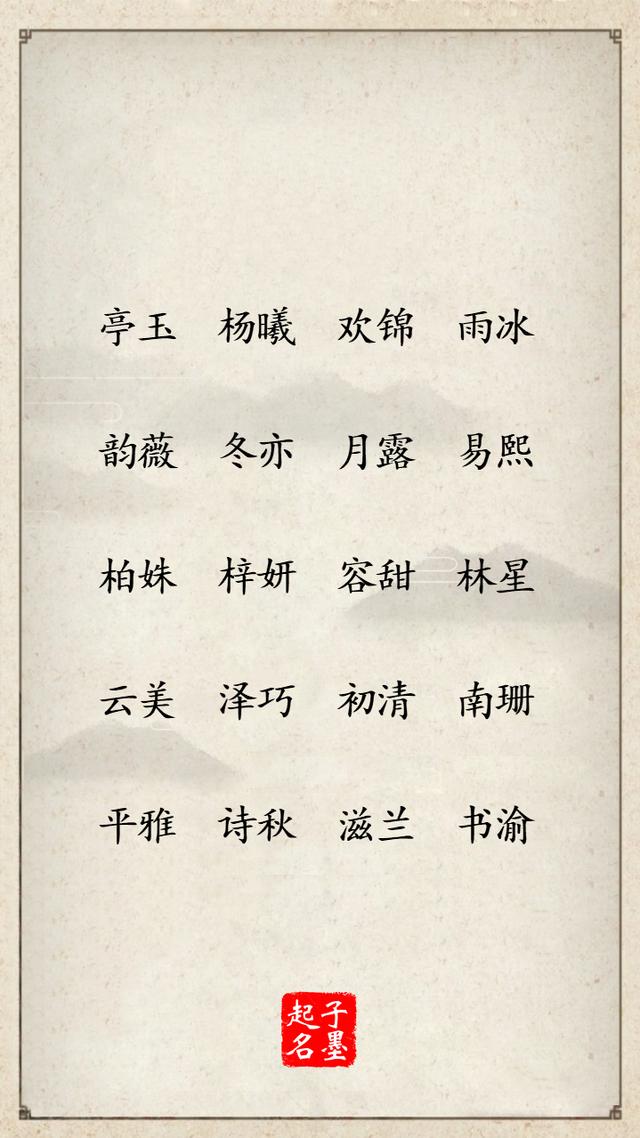 亭玉 杨曦 欢锦 雨冰
韵薇 冬亦 月露 易熙
柏姝 梓妍 容甜 林星
云美 泽巧 初清 南珊
平雅 诗秋 滋兰 书渝
子墨
起名